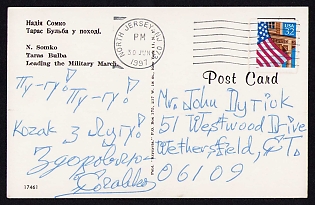 Надія Сомко
Тарас Бульба у поході.
N. Somko
Taras Bulba
Leading the Military March
NORTH JERSEY, NJ 072
PM
30 JUN
1997
USA
32
Post Card
Пу-гу!
Пу-гу!
Козак з Лугу!
Mr. John Dyrick
51 Westwood Drive
Wethersfield, CT.
06109
17461